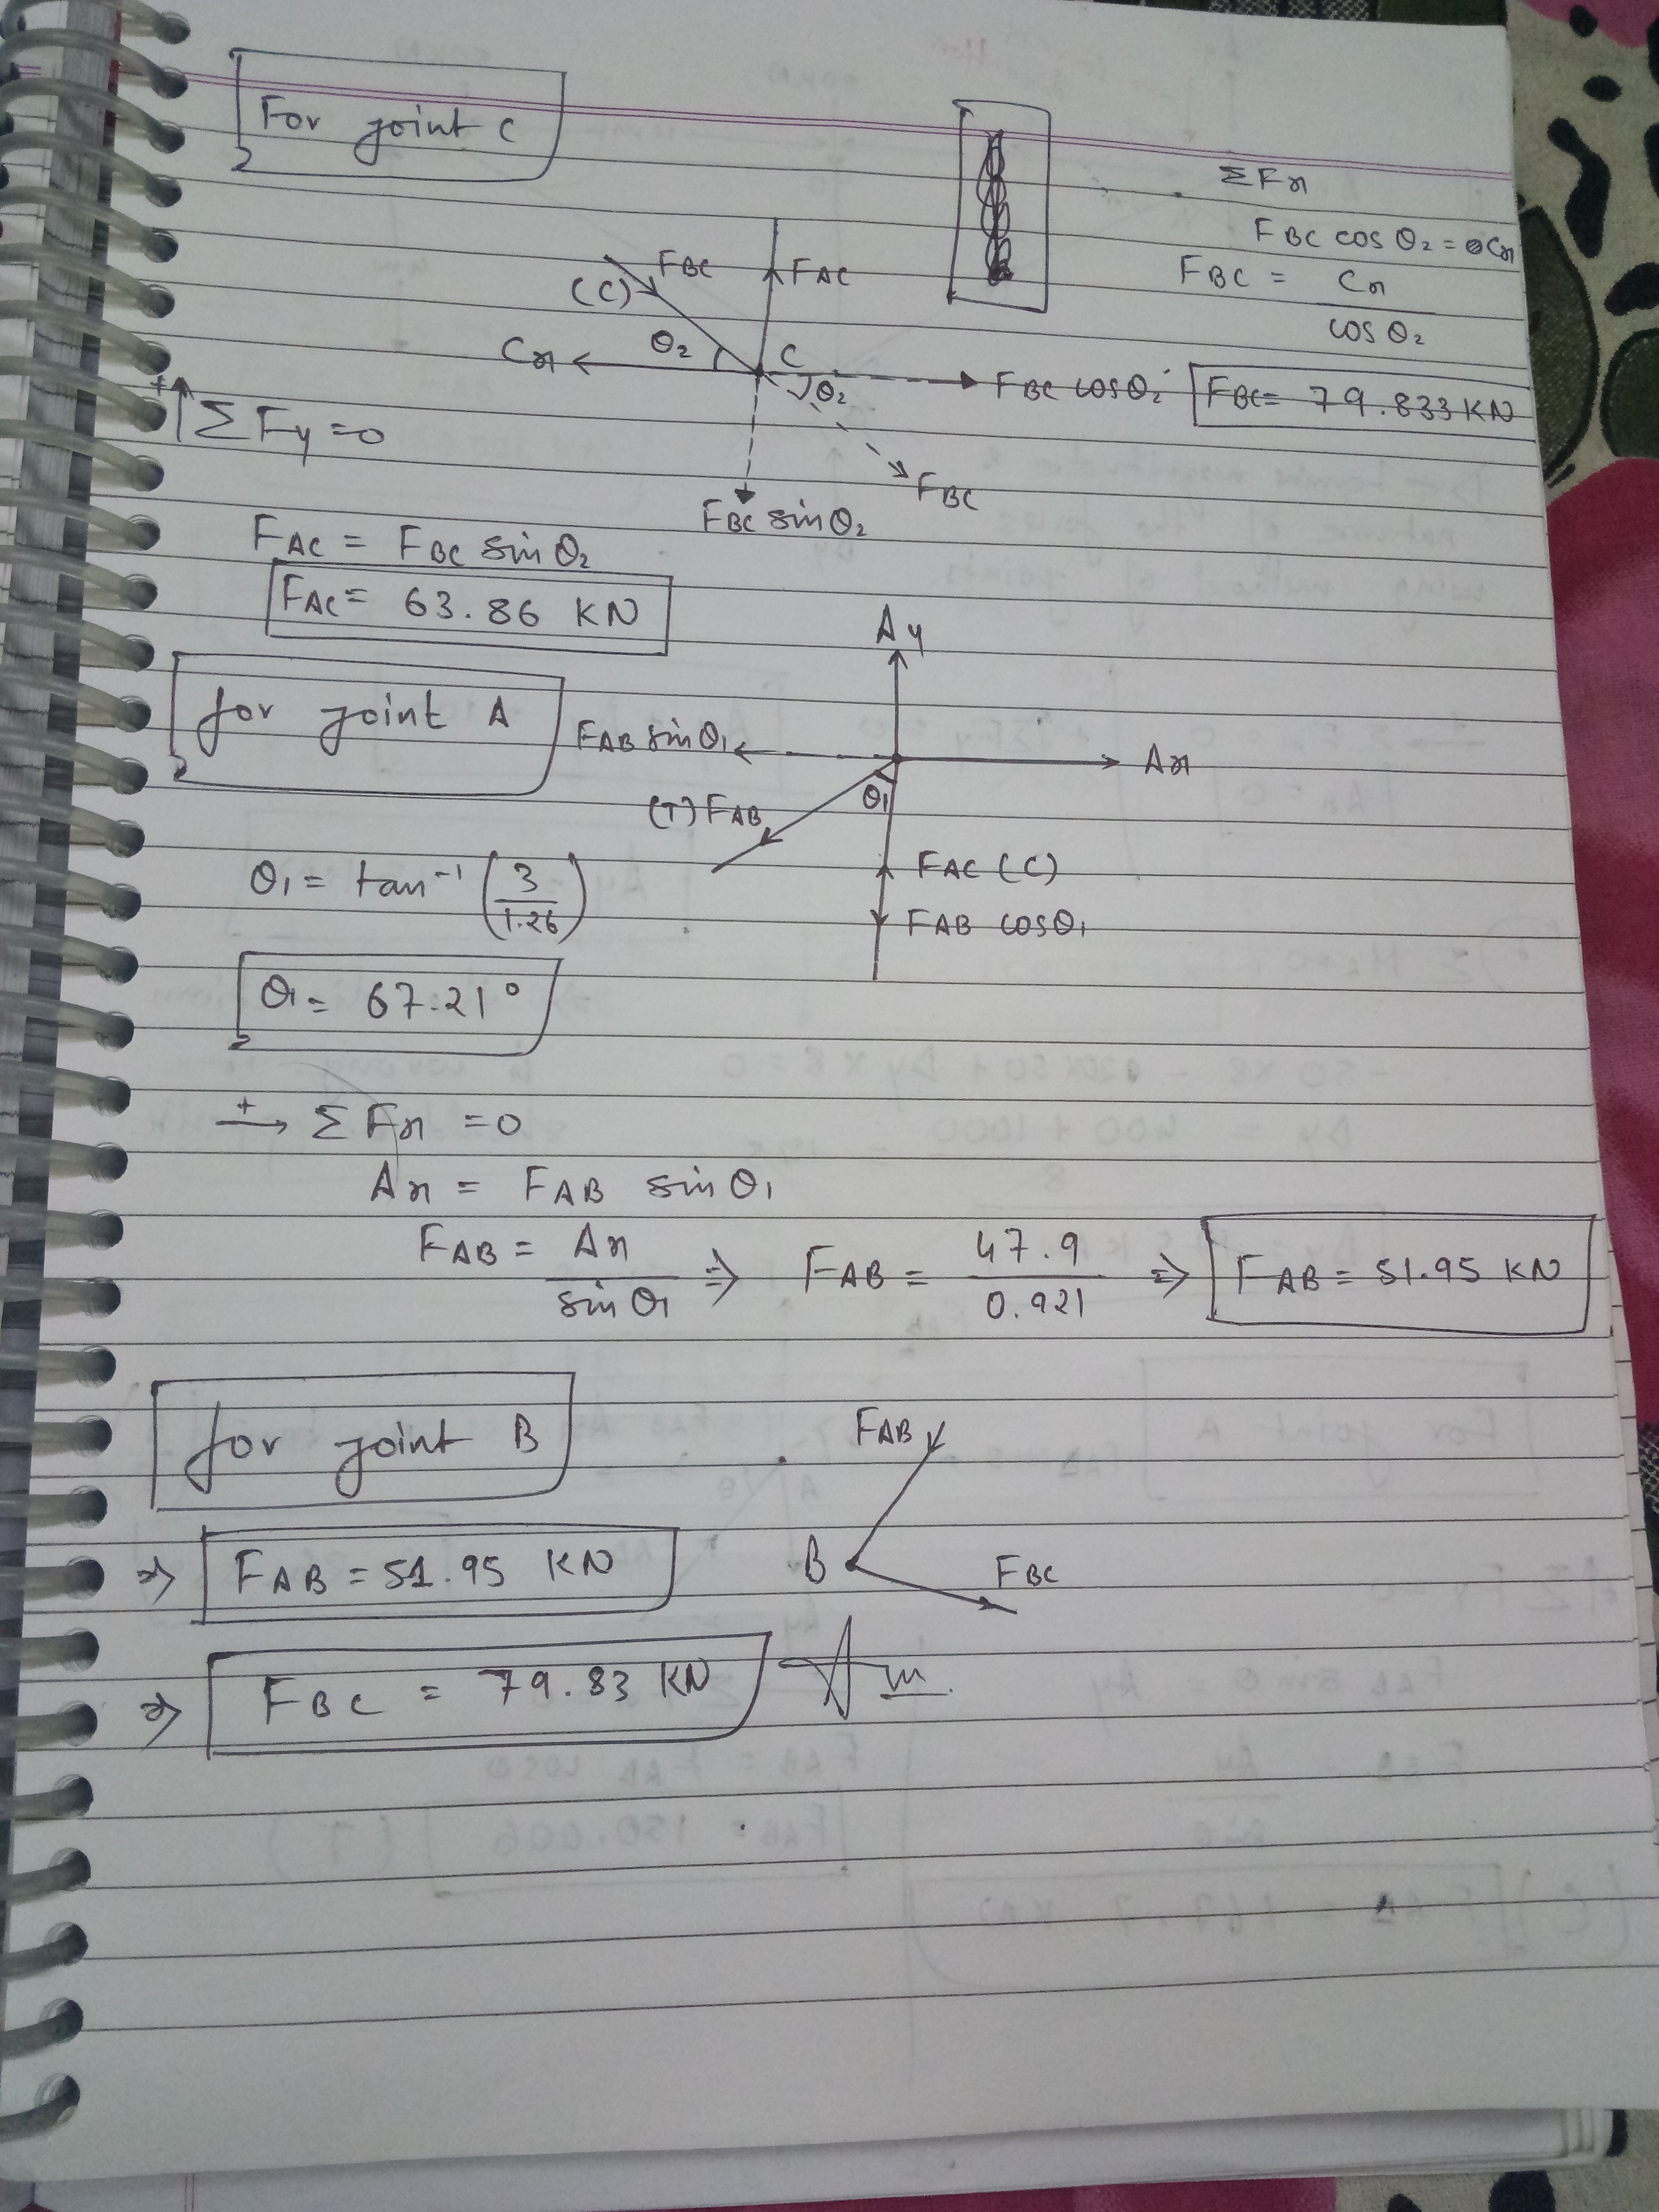 For joint C
ΣFx
FBC cos θ2 = Cx
FBC = Cx / cos θ2
FBC = 79.833 KN
FBC
FAC
(C)
θ2
Cx
C
θ2
FBC cos θ2
FBC
FBC sin θ2
+↑ ΣFy = 0
FAC = FBC sin θ2
FAC = 63.86 KN
for joint A
Ay
FAB sin θ1
Ax
(T) FAB
θ1
FAC (C)
FAB cos θ1
θ1 = tan⁻¹ (3 / 1.26)
θ1 = 67.21°
+→ ΣFx = 0
Ax = FAB sin θ1
FAB = Ax / sin θ1 ⇒ FAB = 47.9 / 0.921 ⇒ FAB = 51.95 KN
for joint B
FAB
B
FBC
⇒ FAB = 51.95 KN
⇒ FBC = 79.83 KN